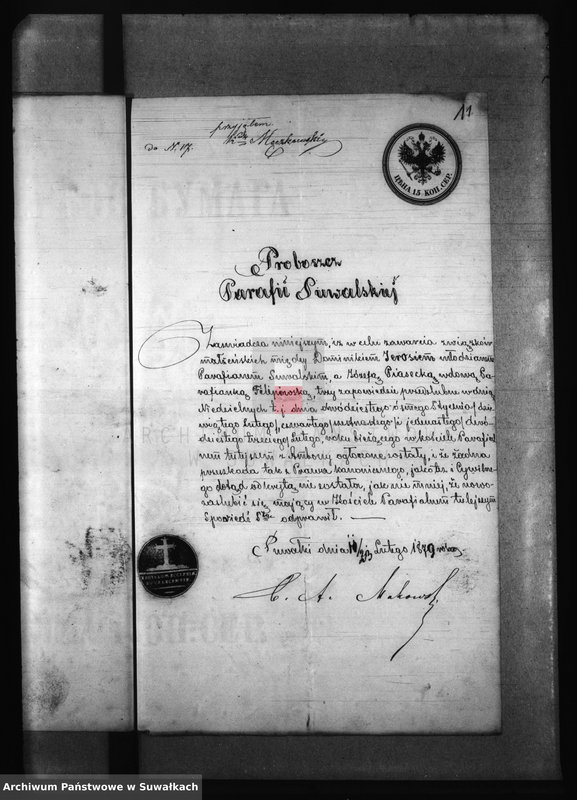 11
przyjąłem
do N. 17.
ЦѢНА 15 КОП. СЕР.
Proboszcz
Parafii Suwalskiej
Zaswiadcza niniejszym, iż w celu zawarcia związków
małżeńskich między Dominikiem Jerosiem młodzianem
Parafianem Suwalskim, a Józefą Piasecką wdową Pa-
rafianką Filipowską, trzy zapowiedzie przedślubne w dnie
Niedzielnych t. j. dnia dwódziestego ósmego Stycznia/ dzie-
wiątego Lutego, czwartego/ szesnastego/ i jedenastego/ dwó-
dziestego trzeciego Lutego, roku bieżącego w kościele Parafial-
nym tutejszym z Ambony ogłoszone zostały, i że żadna
przeszkoda tak z Prawa kanonicznego, jako też i Cywilne-
go dotąd odkrytą nie została, jak nie mniej, że nowo-
zaślubić się mający w Kościele Parafialnym tutejszym
Spowiedź Stą odprawił.
Suwałki dnia 11/23 Lutego 1879 roku
Archiwum Państwowe w Suwałkach